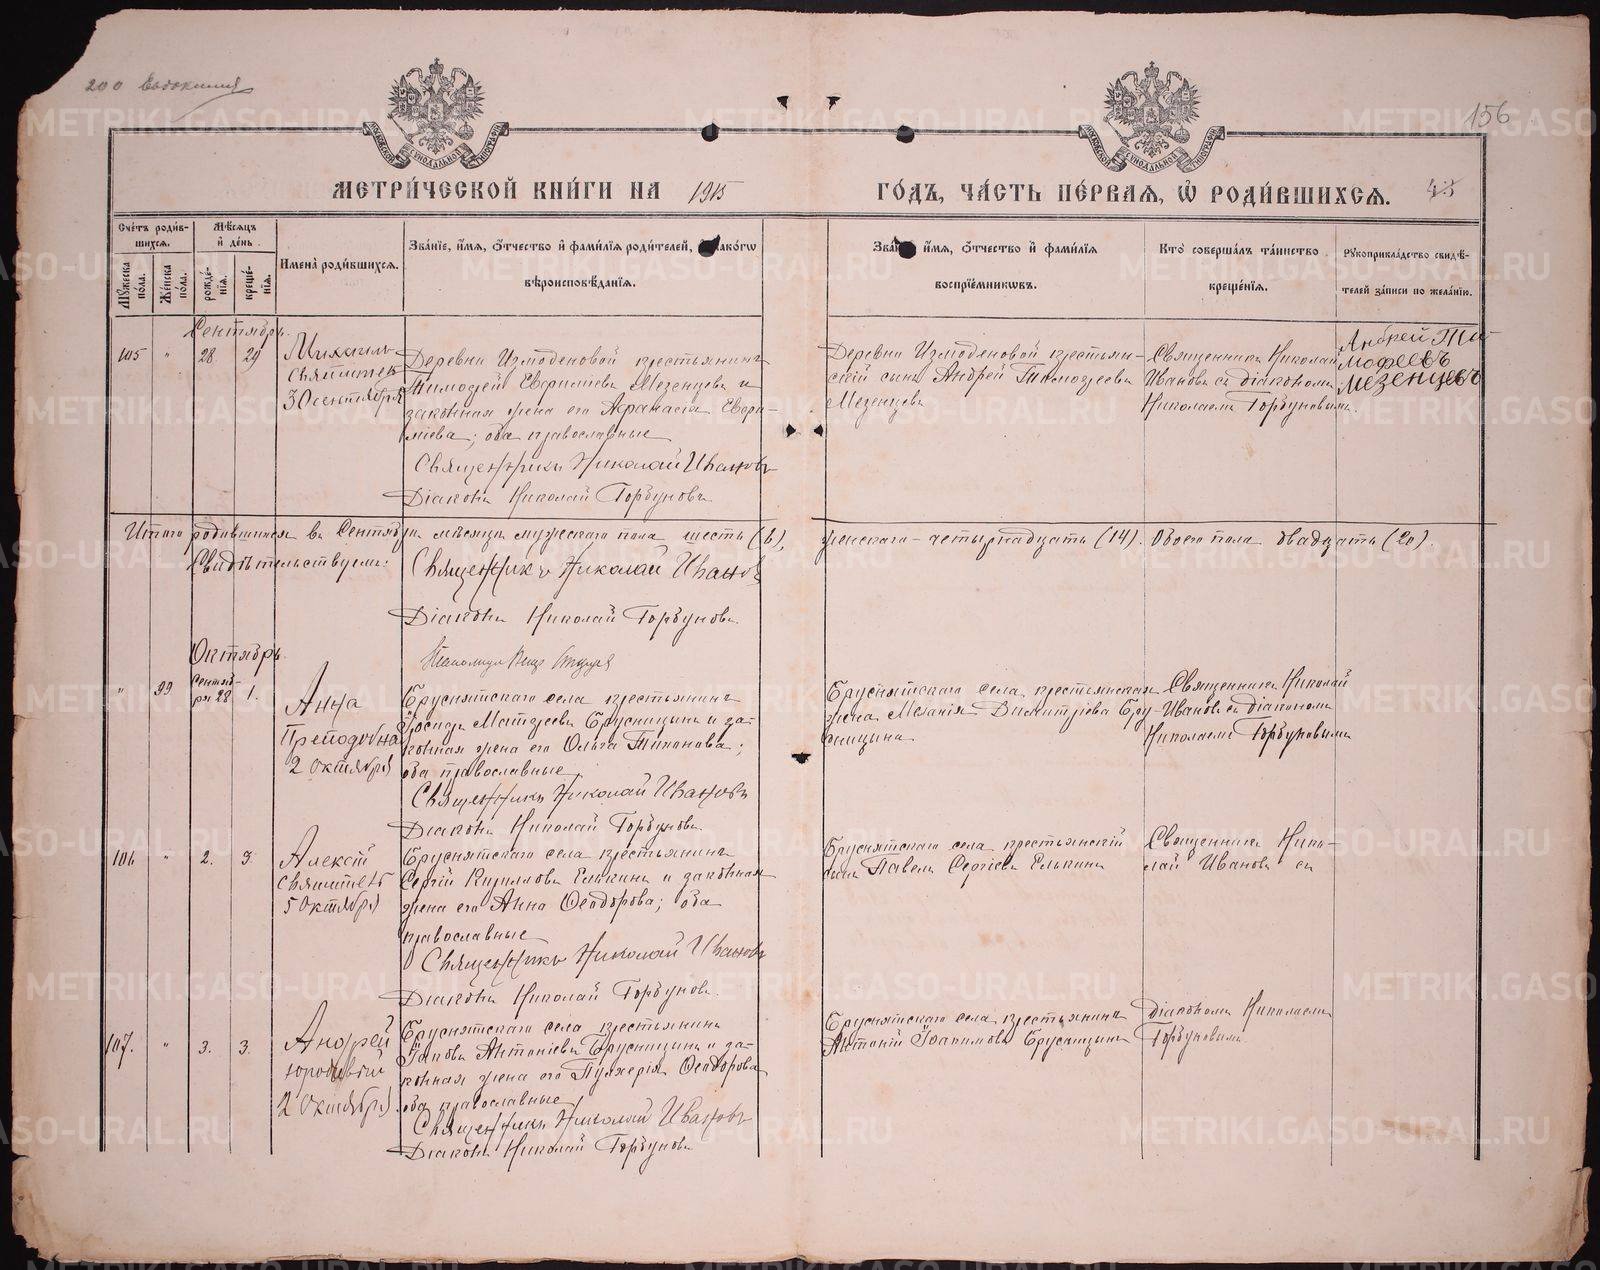 200 Евдокимія
156
МОСКОВСКОЙ СѴНОДАЛЬНОЙ ТИПОГРАФІИ
МОСКОВСКОЙ СѴНОДАЛЬНОЙ ТИПОГРАФІИ
МЕТРИ́ЧЕСКОЙ КНИ́ГИ НА 1915
ГО́ДЪ, ЧА́СТЬ ПЕ́РВАЯ, Ѽ РОДИ́ВШИХСЯ. 43
Сче́тъ роди́в-
шихся.
Мѣ́сяцъ
и҆ де́нь.
Мꙋ́жеска по́ла.
Же́нска по́ла.
рожде́-
нїя.
креще́-
нїя.
И҆мена̀ роди́вшихся.
Зва́нїе, и҆́мя, ѻ҆́тчество и҆ фами́лїя роди́телей, и҆ како́гѡ
вѣроисповѣ́данїя.
Зва́нїе, и҆́мя, ѻ҆́тчество и҆ фами́лїя
воспрїе́мникѡвъ.
Кто̀ соверша́лъ та́инство
креще́нїя.
Рꙋкоприкла́дство свидѣ́-
телей за́писи по жела́нїю.
Сентябрь.
105 " 28 29
Михаилъ
святитель
30 сентября
Деревни Измоденовой крестьянинъ
Тимофей Евфимиевъ Мезенцевъ и
законная жена его Афанасія Евфи-
міева; оба православные
Священникъ Николай Ивановъ
Діаконъ Николай Горбуновъ.
Деревни Измоденовой крестьян-
скій сынъ Андрей Тимофеевъ
Мезенцевъ
Священникъ Николай
Ивановъ съ діакономъ
Николаемъ Горбуновымъ.
Андрей Ти
мофеевъ
Мезенцевъ
Итого родившихся въ Сентябрѣ мѣсяцѣ мужескаго пола шесть (6), женскаго - четырнадцать (14). Обоего пола двадцать (20).
Свидѣтельствуемъ:
Священникъ Николай Ивановъ
Діаконъ Николай Горбуновъ.
Октябрь.
" 99 Сентяб-
ря 28 1.
Анна
Преподобная
2 октября
Бруснятскаго села крестьянинъ
Іосифъ Матфеевъ Брусницынъ и за-
конная жена его Ольга Тихонова;
оба православные
Священникъ Николай Ивановъ
Діаконъ Николай Горбуновъ.
Бруснятскаго села крестьянская
жена Меланія Димитріева Бру-
сницына
Священникъ Николай
Ивановъ съ діакономъ
Николаемъ Горбуновымъ
106 " 2. 3.
Алексій
святитель
5 октября
Бруснятскаго села крестьянинъ
Сергій Кирилловъ Елькинъ и законная
жена его Анна Ѳеодорова; оба
православные
Священникъ Николай Ивановъ
Діаконъ Николай Горбуновъ.
Бруснятскаго села крестьянскій
сынъ Павелъ Сергіевъ Елькинъ
Священникъ Нико-
лай Ивановъ съ
діакономъ Николаемъ
Горбуновымъ
107. " 3. 3.
Андрей
юродивый
2 октября.
Бруснятскаго села крестьянинъ
Іаковъ Антоніевъ Брусницынъ и за-
конная жена его Пулхерія Ѳеодорова
оба православные
Священникъ Николай Ивановъ
Діаконъ Николай Горбуновъ
Бруснятскаго села крестьянинъ
Антоній Іоакимовъ Брусницынъ
METRIKI.GASO-URAL.RU